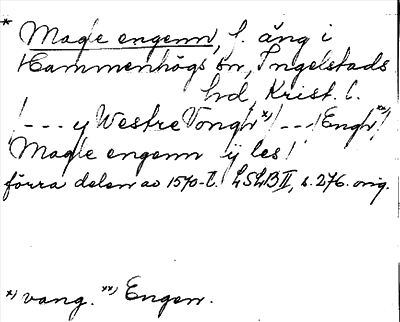 * Magle engenn, f. äng i
Hammenhögs sn, Ingelstads
hd, Krist. l.
/--- y Westre Vongh *)/---/ Engh **)/
Magle engenn ÿ les/
förra delen av 1570-t. LSLB II, s. 276. orig.
*) vang. **) Engen.